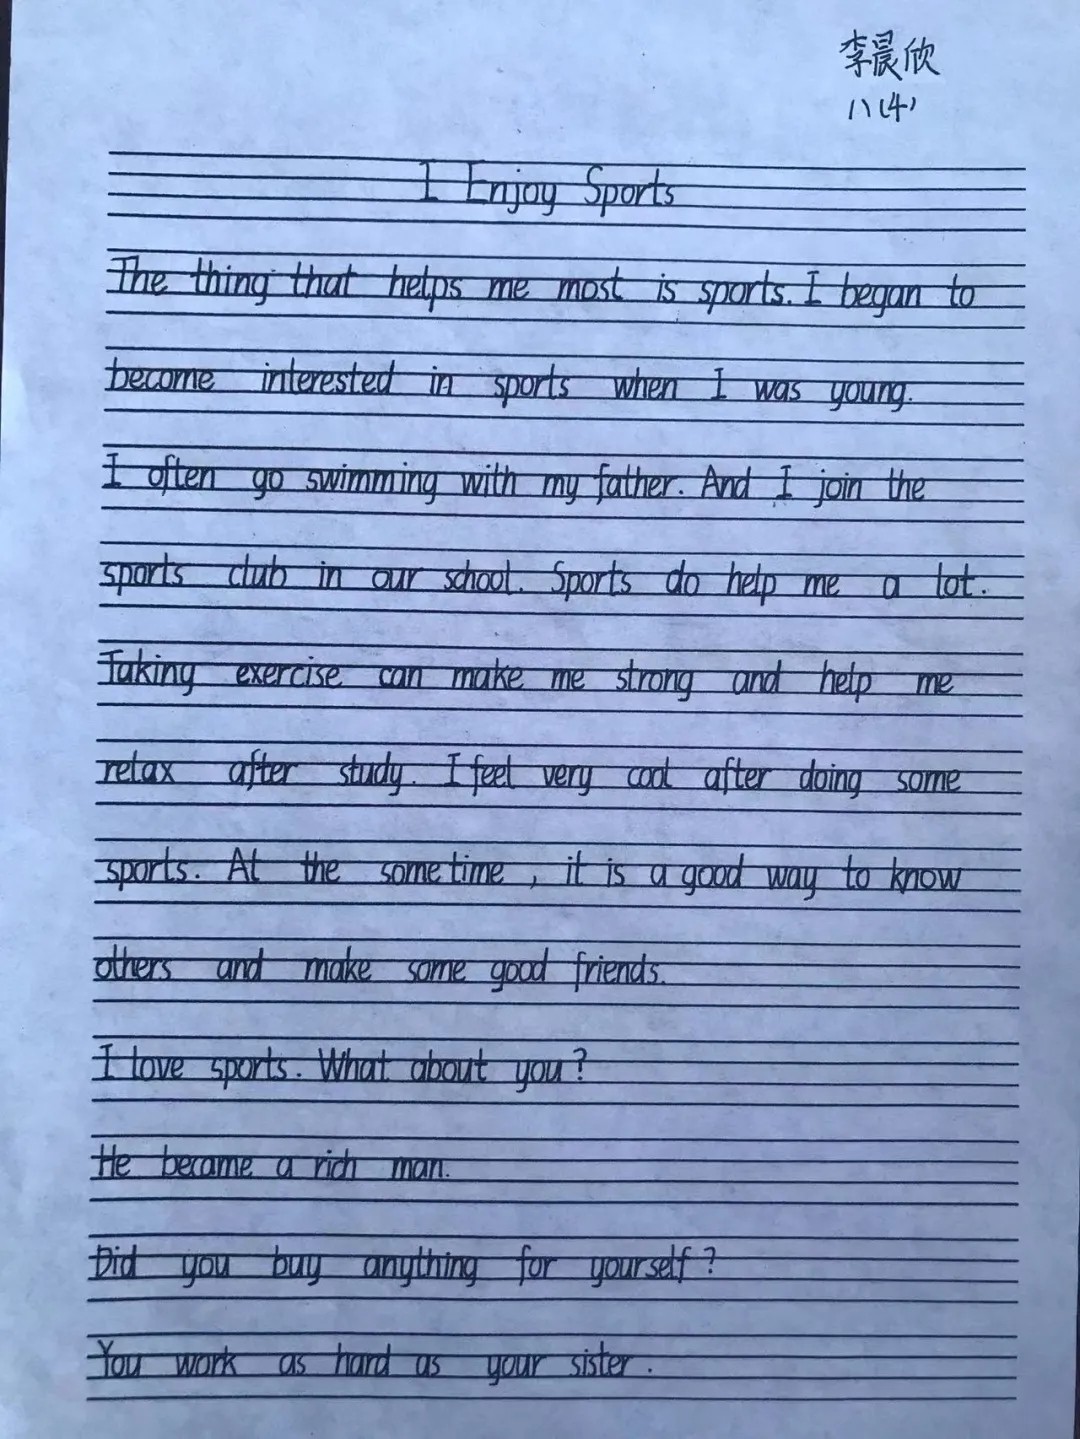 李晨欣
八(4)
I Enjoy Sports
The thing that helps me most is sports. I began to
become interested in sports when I was young.
I often go swimming with my father. And I join the
sports club in our school. Sports do help me a lot.
Taking exercise can make me strong and help me
relax after study. I feel very cool after doing some
sports. At the same time, it is a good way to know
others and make some good friends.
I love sports. What about you?
He became a rich man.
Did you buy anything for yourself?
You work as hard as your sister.